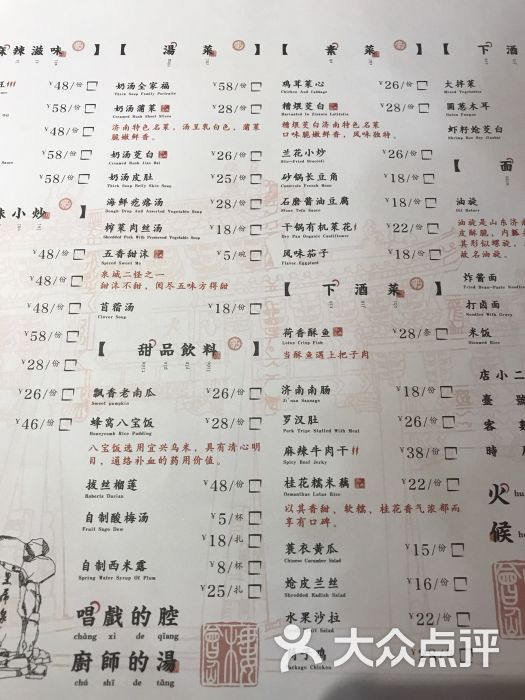 麻辣滋味】
¥48/份
¥58/份
¥48/份
¥58/份
¥58/份
味小炒
¥48/份
¥48/份
¥48/份
¥58/份
¥28/份
¥26/份
¥46/份
【湯菜】
奶汤全家福 ¥58/份
Thick Soup Family Portraits
奶汤蒲菜 ¥28/份
Creamed Rush Shoot Slices
济南特色名菜，汤呈乳白色，蒲菜
脆嫩鲜香。
奶汤茭白 ¥26/份
奶汤皮肚 ¥25/份
Thick Soup Belly Skin Soup
海鲜疙瘩汤 ¥28/份
Dough Drop And Assorted Vegetable Soup
榨菜肉丝汤 ¥18/份
Shredded Pork With Preserved Vegetable Soup
五香甜沫 ¥5/碗
Spiced Sweet Mo
泉城二怪之一
甜沫不甜，阅尽五味方得甜
苜蓿汤 ¥18/份
Clover Soup
【甜品飲料】
飘香老南瓜 ¥26/份
Sweet pumpkin
蜂窝八宝饭 ¥28/份
Honeycomb Rice Pudding
八宝饭选用宜兴乌米，具有清心明
目，通络补血的药用价值。
拔丝榴莲 ¥48/份
Roberis Durian
自制酸梅汤 ¥5/杯
Fruit Sago Dew
¥18/扎
自制西米露 ¥8/杯
Spring Water Syrup Of Plum
¥25/扎
唱戲的腔
chàng xì de qiāng
廚師的湯
chú shī de tāng
【素菜】
鸡茸菜心 ¥26/份
Chicken And Cabbage
糟煨茭白 ¥28/份
Marinated In Zizania Latifolia
糟煨茭白济南特色名菜
口味脆嫩鲜香，风味独特。
兰花小炒 ¥26/份
Stir-Fried Broccoli
砂锅长豆角 ¥18/份
Casserole French Bean
石磨酱油豆腐 ¥28/份
Stone Tofu Sauce
干锅有机菜花 ¥22/份
Dry Pan Organic Cauliflower
风味茄子 ¥18/份
Flavor Eggplant
【下酒菜】
荷香酥鱼 ¥28/条
Lotus Crisp Fish
当酥鱼遇上把子肉
济南南肠 ¥18/份
Ji'nan Sausage
罗汉肚 ¥26/份
Pork Tripe Stuffed With Meat
麻辣牛肉干 ¥38/份
Spicy Beef Jerky
桂花糯米藕 ¥22/份
Osmanthus Lotus Rice
以其香甜、软糯、桂花香气浓郁而
享有口碑。
蓑衣黄瓜 ¥15/份
Chinese Cucumber Salad
炝皮兰丝 ¥16/份
Shredded Radish Salad
水果沙拉 ¥22/份
Package Chicken
【下酒
大拌菜
Mixed Vegetables
圆葱木耳
Onion Fungus
虾籽炝茭白
【面
油旋
Oil Rotary
油旋是山东济南
其形似螺旋，
故名油旋。
炸酱面
Fried Bean-Paste Noodles
打卤面
Noodles With Gravy
米饭
Steamed Rice
店小二
臺號
客數
時
火 hu
候 h
大众点评